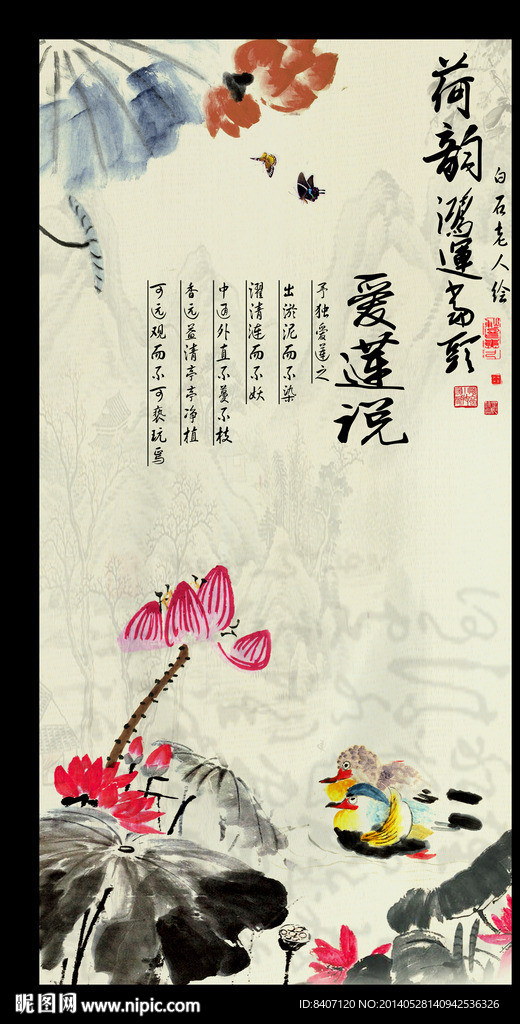 荷韻鴻運當頭
白石老人绘
爱莲说
予独爱莲之
出淤泥而不染
濯清涟而不妖
中通外直不蔓不枝
香远益清亭亭净植
可远观而不可亵玩焉
昵图网 www.nipic.com
ID:8407120 NO:20140528140942536326